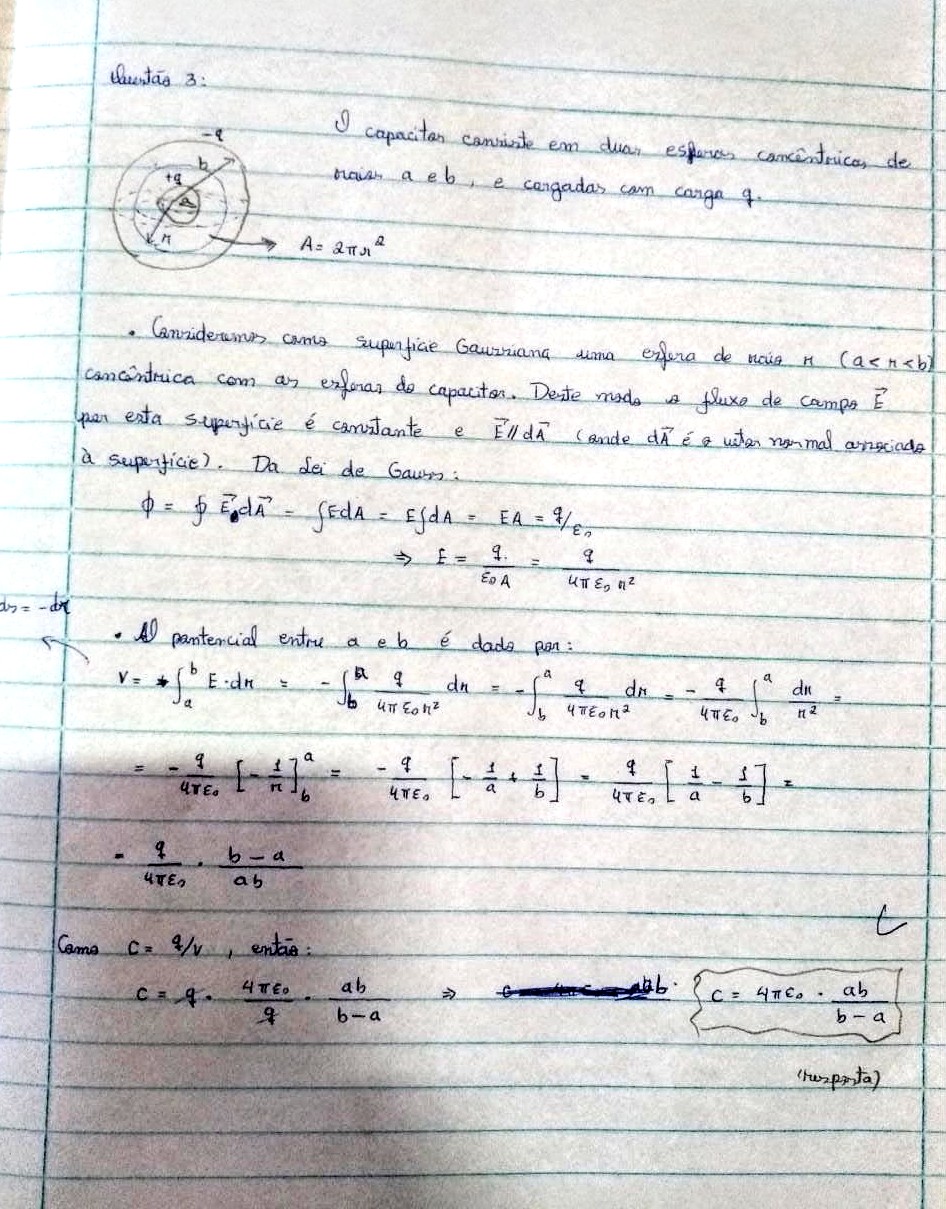 Questão 3:
-q
b
+q
a
r
A = 2πr²
O capacitor consiste em duas esferas concêntricas de
raios a e b, e cargadas com carga q.
• Consideremos como superfície Gaussiana uma esfera de raio r (a<r<b)
concêntrica com as esferas do capacitor. Deste modo o fluxo de campo E⃗
por esta superfície é constante e E⃗//dA⃗ (onde dA⃗ é o vetor normal associado
à superfície). Da Lei de Gauss:
ϕ = ∮ E⃗•dA⃗ = ∫EdA = E∫dA = EA = q/ε₀
⇒ E = q/(ε₀A) = q/(4πε₀r²)
ds = -dr
• potencial entre a e b é dado por:
V = ∫ₐᵇ E·dr = -∫_b^a q/(4πε₀r²) dr = -∫_b^a q/(4πε₀r²) dr = - q/(4πε₀) ∫_b^a dr/r² =
= - q/(4πε₀) [-1/r]_b^a = - q/(4πε₀) [-1/a + 1/b] = q/(4πε₀) [1/a - 1/b] =
= q/(4πε₀) · (b-a)/(ab)
Como C = q/V, então:
C = q · 4πε₀/q · ab/(b-a) ⇒ C = 4πε₀ · ab/(b-a)
(resposta)